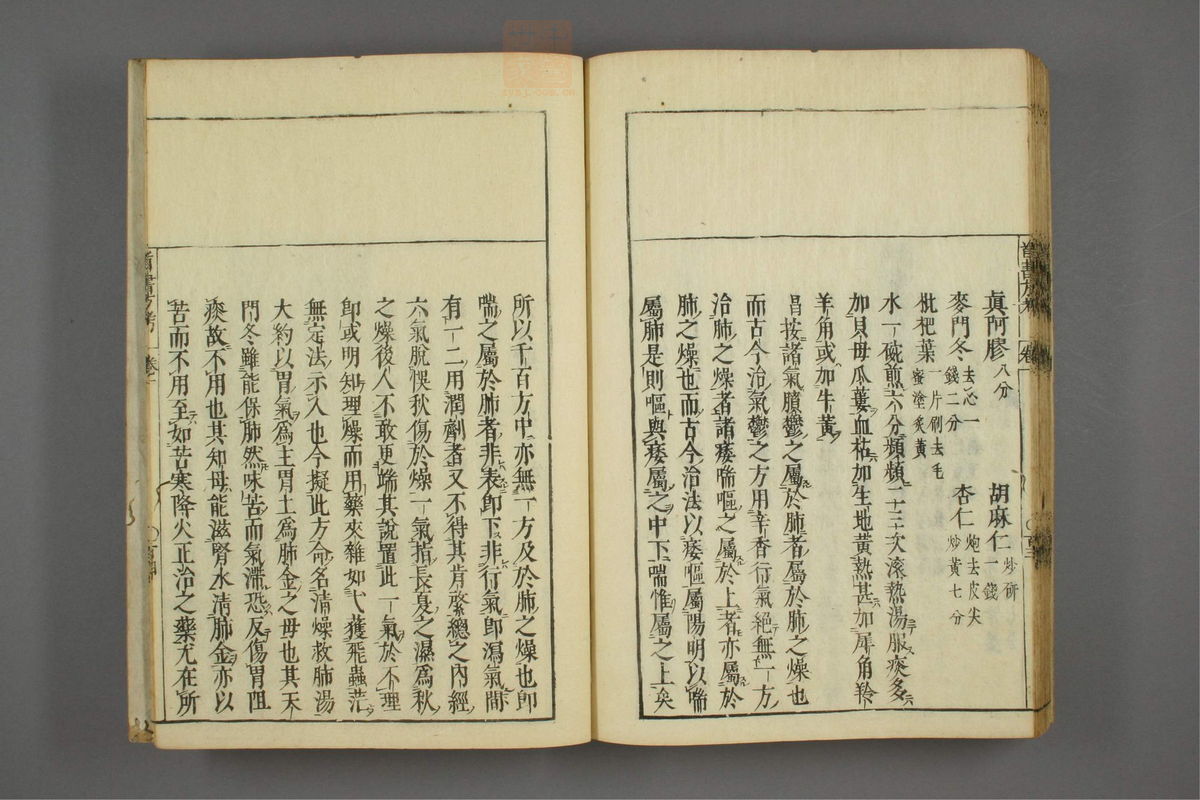 真阿膠八分　胡麻仁一錢炒研
麥門冬去心一錢二分　杏仁炮去皮尖炒黃七分
枇杷葉一片刷去毛蜜塗炙黃
水一碗煎六分頻頻二三次滚熱湯服痰多
加貝母瓜蔞血枯加生地黃熱甚加犀角羚
羊角或加牛黃
昌按諸氣膹鬱之屬於肺者屬於肺之燥也
而古今治氣鬱之方用辛香行氣絕無一方
治肺之燥者諸痿喘嘔之屬於上者亦屬於
肺之燥也而古今治法以痿嘔屬陽明以喘
屬肺是則嘔與痿屬之中下喘惟屬之上矣
所以千百方中亦無一方及於肺之燥也卽
喘之屬於肺者非表卽下非行氣卽瀉氣間
有一二用潤劑者又不得其肯綮總之內經
六氣脫悞秋傷於燥一氣指長夏之濕爲秋
之燥後人不敢更端其說置此一氣於不理
卽或明知理燥而用藥夾雜如弋獲飛蟲茫
無定法示人也今擬此方命名淸燥救肺湯
大約以胃氣爲主胃土爲肺金之母也其天
門冬雖能保肺然味苦而氣滯恐反傷胃阻
痰故不用也其知母能滋腎水淸肺金亦以
苦而不用至如苦寒降火正治之藥尤在所